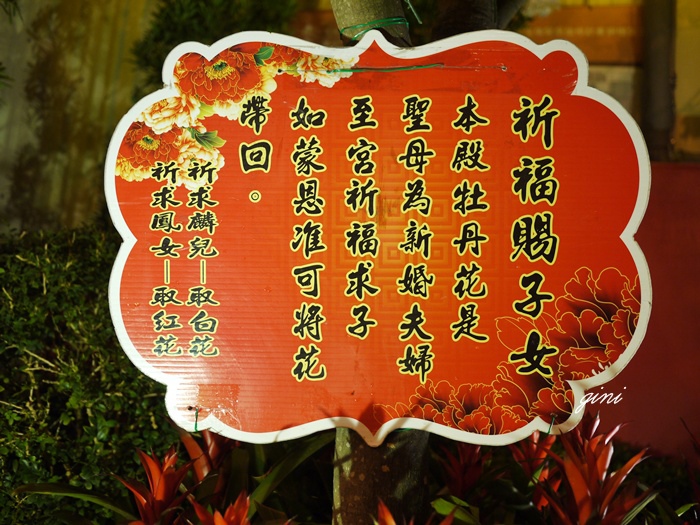 祈福賜子女
本殿牡丹花是
聖母為新婚夫婦
至宮祈福求子
如蒙恩准可將花
帶回。
祈求麟兒—取白花
祈求鳳女—取紅花
gini